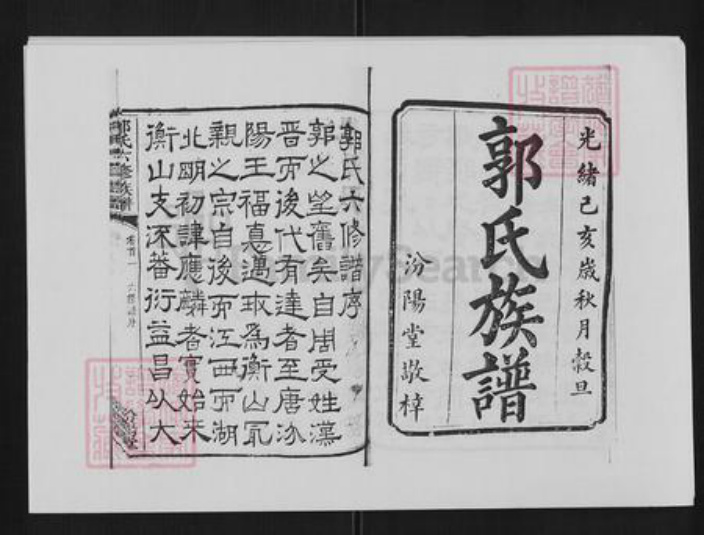 光緒己亥歲秋月穀旦
郭氏族譜
汾陽堂敬梓
郭氏六修譜序
郭之望舊矣自周受姓漢
晉而後代有達者至唐汾
陽王福惪邁珬為衡山冣
親之宗自後而江西而湖
北明初諱應麟者實始来
衡山支深蕃衍益昌以大
郭氏六修族譜
卷首一 六修譜序